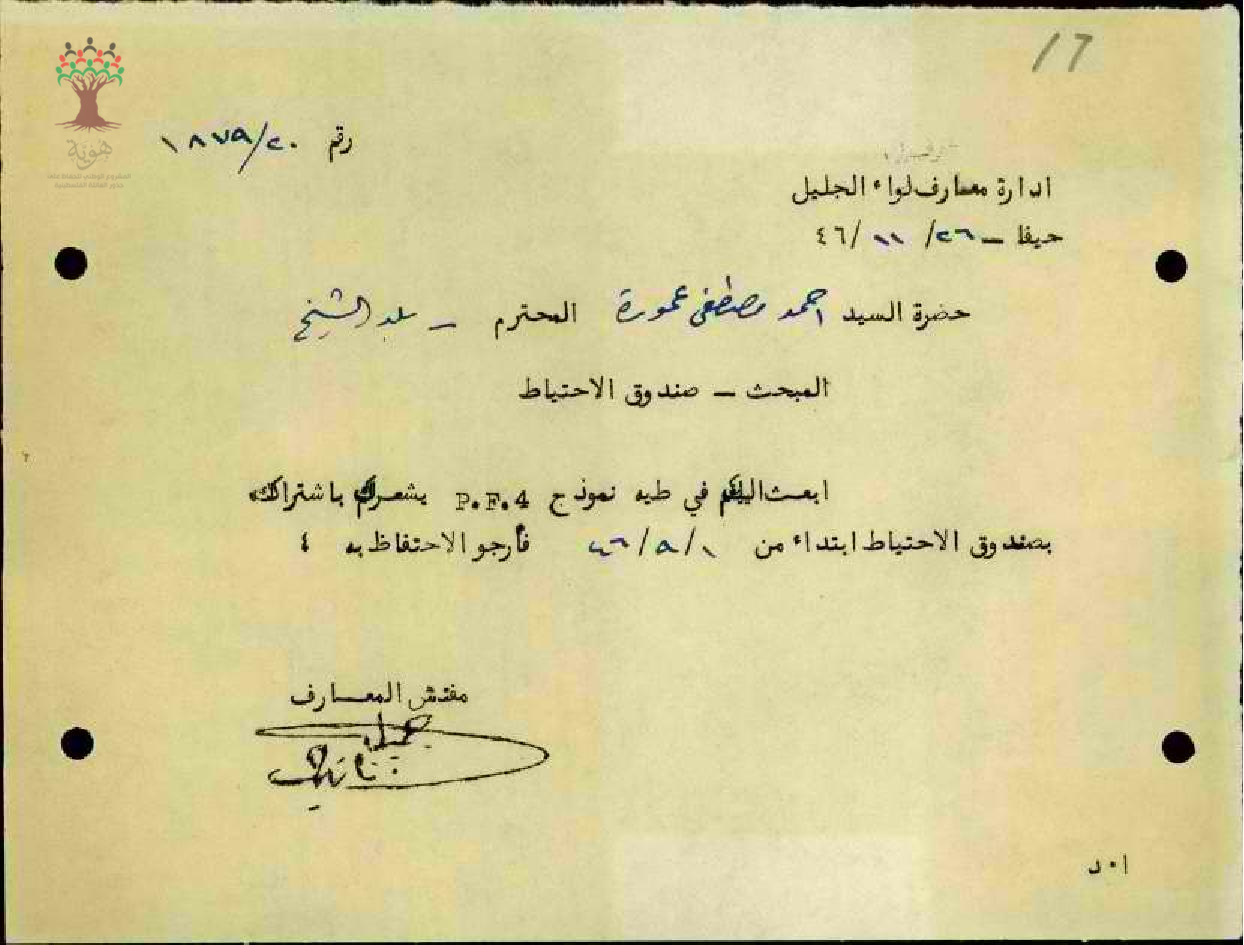 17
هوية
رقم ١٨٧٩/٢٠
ادارة معارف لواء الجليل
حيفا – ٢٦/ ١١ /٤٦
حضرة السيد احمد مصطفى عمورة المحترم – بلد الشيخ
المبحث – صندوق الاحتياط
ابعث اليكم في طيه نموذج P.F.4 يشعركم باشتراككم
بصندوق الاحتياط ابتداء من ١/٩/٤٦ فأرجو الاحتفاظ به ٤
مفتش المعارف
جميل
ا٠د